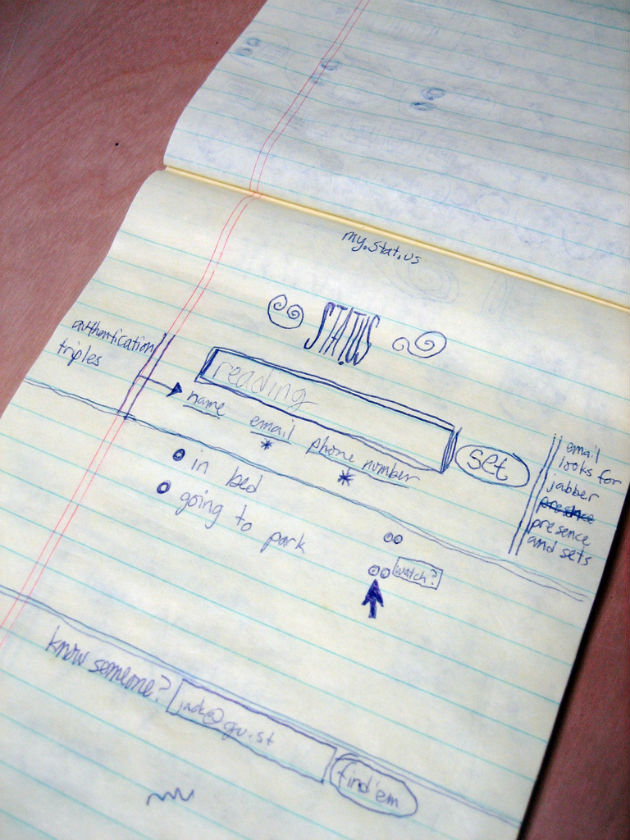 my.stat.us
STAT.US
authentication
triples
reading
name email phone number
set
in bed
going to park
watch?
email
looks for
jabber
presence
presence
and sets
know someone?
jack@gu.st
find 'em